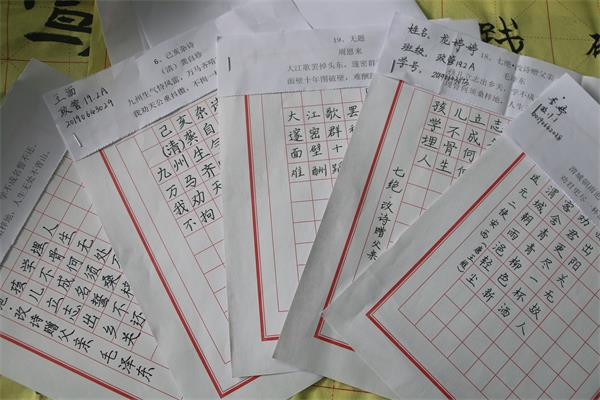 王
双管19.2A
20190643029
学不成名誓不还，
地，人生无处不青山。
人生无处
埋骨何须
学不成名誓不还
孩儿立志出乡关
绝·改诗赠父亲 毛泽东
6、己亥杂诗
（清）龚自珍
九州生气恃风雷，万马齐喑
我劝天公重抖擞，不拘一
己亥杂诗
(清)龚自
九州生气
万马齐
我劝天
不拘
19、无题
周恩来
大江歌罢掉头东，邃密群
面壁十年图破壁，难酬
大江歌罢
邃密群科
面壁十
难酬
姓名：龙婷婷
班级：双管192A
学号：
18、七绝·改诗赠父亲
毛泽东
孩儿立志
学不成名
埋骨何
人生
七绝·改诗赠父亲
出阳关无故人
劝君更尽一杯酒
客舍青青柳色新
渭城朝雨浥轻尘
送元二使安西
唐王维
践